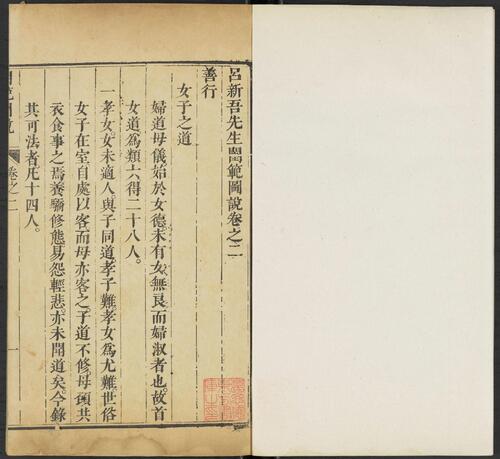 呂新吾先生閨範圖說卷之二
善行
女子之道
婦道母儀始於女德未有女無良而婦淑者也故首
女道爲類六得二十八人。
一孝女。女未適人與子同道孝子難孝女爲尤難世俗
女子在室自處以客而母亦客之子道不修母頭共
衣食事之焉養驕修態易怨輕悲亦未聞道矣今錄
其可法者凡十四人。
卷之二
一